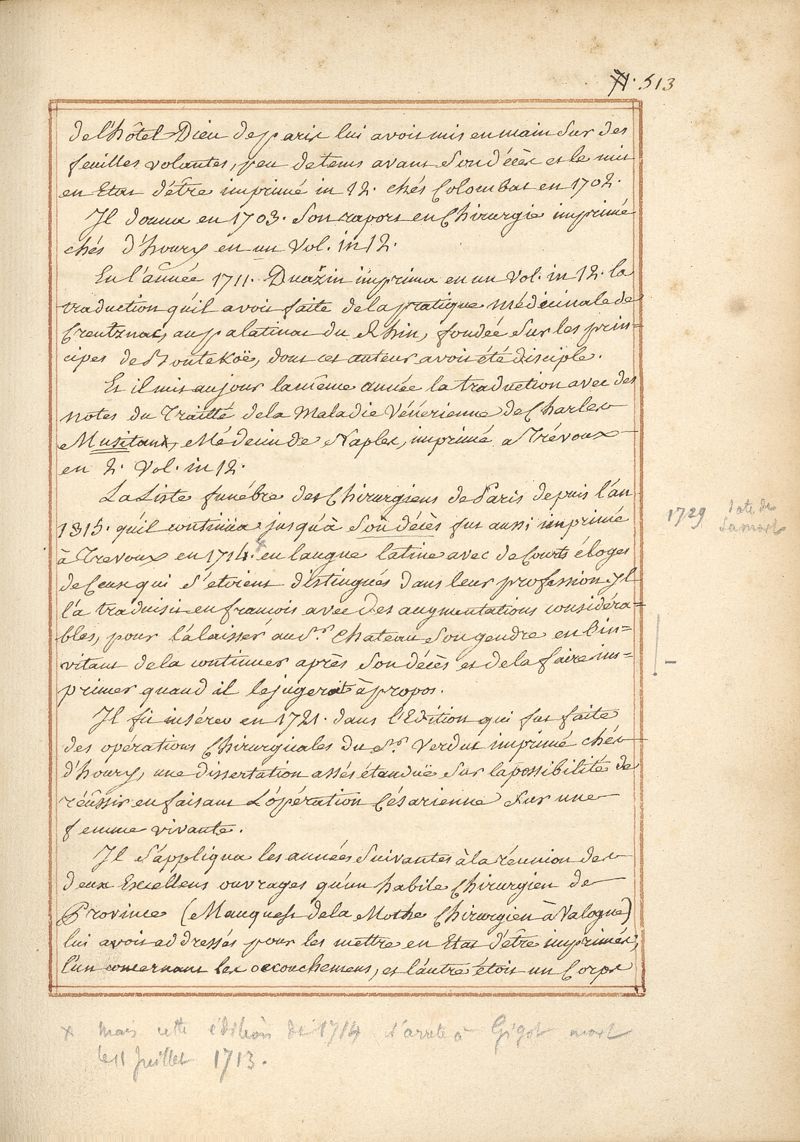 513
de l'hôtel Dieu de paris lui avoit mis en main sur des
feuilles volantes, peu de tems avant son décès et le mit
en Etat d'être imprimé in 12. chés Colombat en 1702.
Il donna en 1703. son raport en Chirurgie imprimé
chés d'houry en un Vol. in 12.
En l'année 1711. Devaux imprima en un Vol. in 12. la
traduction qu'il avoit faite de la pratique médecinale de
Creutznac, au palatinat du Rhin, fondée sur les prin=
cipes de Bontekoë, dont cet auteur avoit été disciple.
Et il mit au jour la même année la traduction avec des
notes du Traitté de la Maladie Vénérienne de Charles
Musitan, Médecin de Naples, imprimé a Trévoux
en 2. Vol. in 12.
La Liste funébre des Chirurgiens de Paris depuis l'an
1315. qu'il continüa jusqu'à son décès fut aussi imprimé
à Trevoux en 1714. x en langue latine avec de Courts éloges
de Ceux qui s'etoient distingués dans leur profession, yl
l'a traduisit en francois avec des augmentations considéra=
bles, pour l'a laisser au Sr. Chateau son gendre en l'in=
vitant de la continuer après son décès et de la faire im=
primer quand il le jugeroit à propos.
Il fit insérer en 1721. dans l'Edition qui fut faite
des opérations Chirurgicales du Sr. Verduc imprimé chés
d'houry, une dissertation assés étandüe sur la possibilité de
réüssir en faisant L'opération Césarienne sur une
femme vivante.
Il s'appliqua les années suivantes à la réunion de
deux Excellens ouvrages qu'un habile Chirurgien de
Province (Mauquest de la Mothe Chirurgien à Valogne)
lui avoit addressés pour les mettre en Etat d'être imprimés;
l'un concernant les accouchemens, et l'autre étoit un Corps
1729 date de
sa mort
x mais cette édition de 1714 s'arrete à Gigot mort
le 11 Juillet 1713.